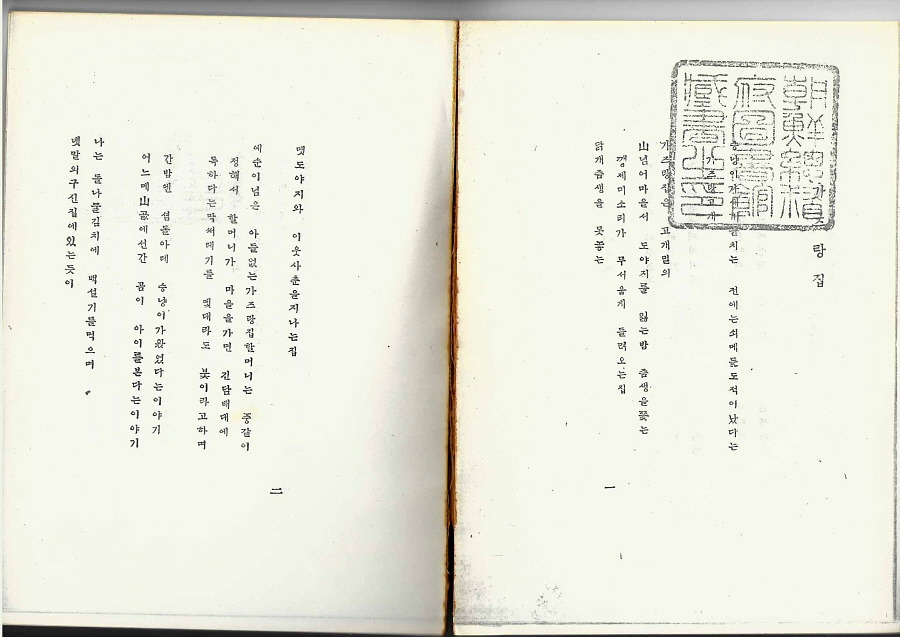 朝鮮總督
府圖書館
藏書之印
가즈랑집
승냥이가새끼를치는 전에는쇠메든도적이났다는
가즈랑고개
가즈랑집은 고개밑의
山넘어마을서 도야지를 잃는밤 즘생을쫓는
깽제미소리가 무서웁게 들려오는집
닭개즘생을 못놓는
一
멧도야지와 이웃사춘을지나는집
예순이넘은 아들없는가즈랑집할머니는 중같이
정해서 할머니가 마을을가면 긴담배대에
독하다는막써레기를 멫대라도 붗이라고하며
간밤엔 섬돌아레 승냥이가왔었다는이야기
어느메山곬에선간 곰이 아이를본다는이야기
나는 돌나물김치에 백설기를먹으며
녯말의구신집에있는듯이
二